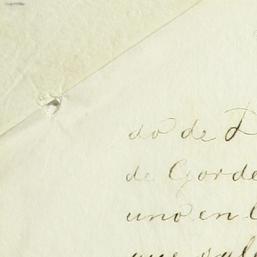 do de
de Gorde
uno en l
que sale